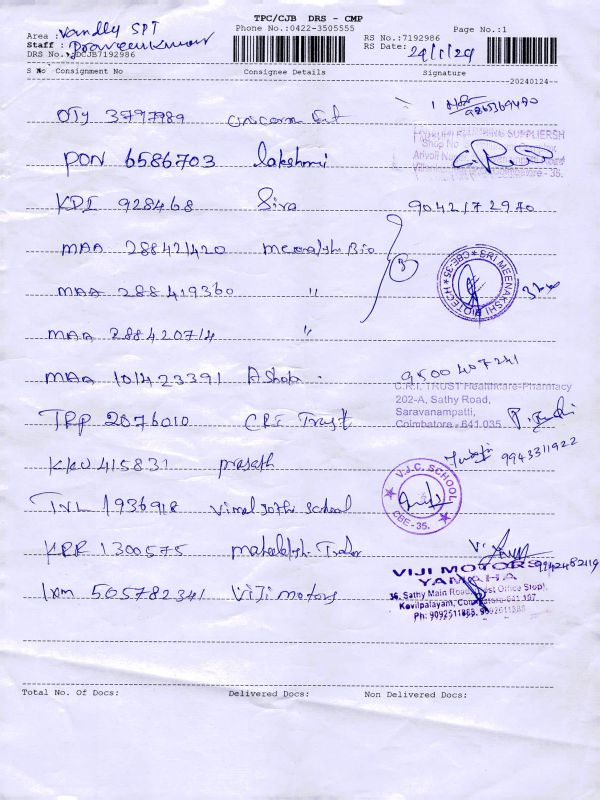 TPC/CJB DRS - CMP
Area : Vandly SPT
Phone No.:0422-3505555
RS No.:7192986
Page No.:1
Staff : Praveenkumar
RS Date: 24/1/24
DRS No. DCJB7192986
S No Consignment No Consignee Details Signature
20240124--
9865369490
OTY 3797989
Shop No
PON 6586703 lakshmi
KDI 928468 Siva 9042172970
MAA 288421420 Meenakshi Bio
3
SRI MEENAKSHI BIOTECH * CBE-35 *
MAA 288419360 "
MAA 288420714 "
MAA 101423391 Ashok 9500407241
C.R.I. TRUST Healthcare-Pharmacy
202-A, Sathy Road,
Saravanampatti,
Coimbatore - 641 035
TRP 2076010 CRI Trust
9943311922
KKU 415831 prasath
V.J.C. SCHOOL
CBE - 35.
TVL 1936918 Vimal Jothi School
KRR 1300575
9242482119
VIJI MOTORS
YAMAHA
Ixm 565782341 ViJi motors
36, Sathy Main Road, (Post Office Stop),
Kovilpalayam, Coimbatore-641 107
Ph: 9092511883, 9092611883
Total No. Of Docs: Delivered Docs: Non Delivered Docs: